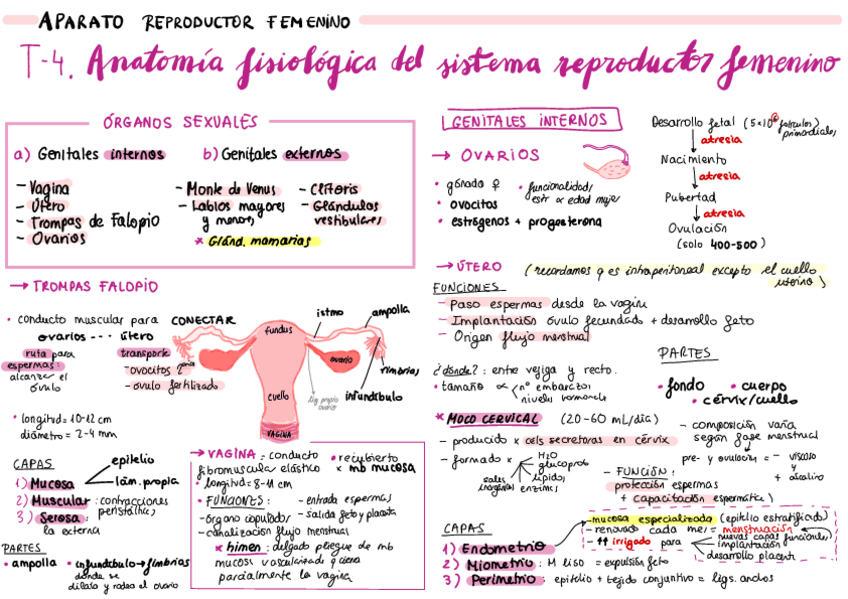 APARATO REPRODUCTOR FEMENINO
T-4. Anatomía fisiológica del sistema reproductor femenino
ÓRGANOS SEXUALES
a) Genitales internos
- Vagina
- Útero
- Trompas de Falopio
- Ovarios
b) Genitales externos
- Monte de Venus
- Labios mayores
y menores
- Clítoris
- Glándulas
vestibulares
* Gland. mamarias
→ TROMPAS FALOPIO
• conducto muscular para CONECTAR
ovarios --- útero
ruta para
espermas:
alcanzar el
óvulo
transporte
- ovocitos
- óvulo fertilizado
• longitud = 10-12 cm
diámetro = 2-4 mm
CAPAS
1) Mucosa
epitelio
lám. propia
2) Muscular: contracciones
peristálticas
3) Serosa:
la externa
PARTES
• ampolla
• infundíbulo → fimbrias
donde se
dilata y rodea el ovario
fundus
istmo
ampolla
ovario
fimbrias
infundíbulo
lig propio
ovario
cuello
VAGINA
→ VAGINA = conducto
fibromuscular elástico
• recubierto
x mb mucosa
• longitud = 8-11 cm
• FUNCIONES:
- órgano copulador
- canalización flujo menstrual
- entrada espermas
- salida feto y placenta
* himen: delgado pliegue de mb
mucosa vascularizada q cierra
parcialmente la vagina
GENITALES INTERNOS
→ OVARIOS
• gónada ♀
• ovocitos
• estrógenos + progesterona
• funcionalidad,
estr ∝ edad mujer
Desarrollo fetal (5x10⁶ folículos
primordiales)
atresia
Nacimiento
atresia
Pubertad
atresia
Ovulación
(solo 400-500)
→ ÚTERO (recordamos q es intraperitoneal excepto el cuello
uterino)
FUNCIONES
- Paso espermas desde la vagina
- Implantación óvulo fecundado + desarrollo feto
- Origen flujo menstrual
¿dónde?: entre vejiga y recto.
• tamaño ∝ nº embarazos
niveles hormonales
PARTES
• fondo
• cuerpo
• cérvix/cuello
* MOCO CERVICAL (20-60 mL/día)
- producido x cels secretoras en cérvix
- formado x
H₂O
glucoprot.
lípidos
enzimas
sales
inorgánicas
- composición varía
según fase menstrual
pre- y ovulación = - viscoso
y
+ alcalino
- FUNCIÓN:
protección espermas
+ capacitación espermática)
CAPAS
1) Endometrio
- mucosa especializada (epitelio estratificado)
- renovado cada mes = menstruación
- ↑↑ irrigado para
nuevas capas funcionales
implantación
desarrollo placenta
2) Miometrio: M liso = expulsión feto
3) Perimetrio: epitelio + tejido conjuntivo = ligs. anchos